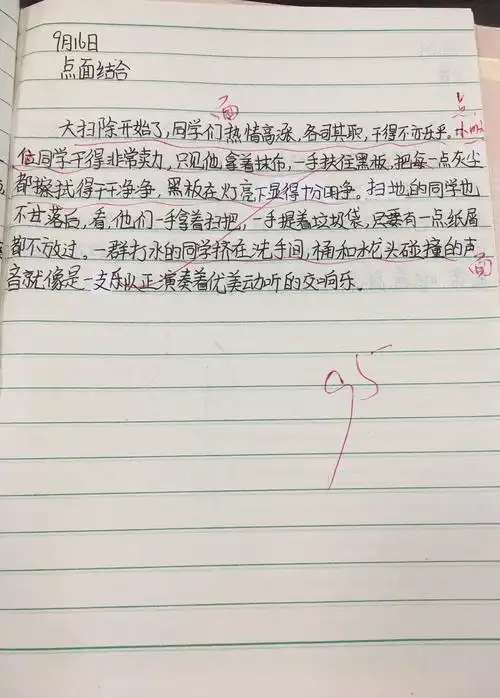 9月16日
点面结合
面
点
大扫除开始了,同学们热情高涨,各司其职,干得不亦乐乎。
位同学干得非常卖力,只见他,拿着抹布,一手扶住黑板,把每一点灰尘
都擦拭得干干净净,黑板在灯亮下显得十分明争。扫地的同学也
不甘落后,看,他们一手拿着扫把,一手提着垃圾袋,只要有一点纸屑
都不放过。一群打水的同学挤在洗手间,桶和水龙头碰撞的声
音就像是一支乐队正演奏着优美动听的交响乐。
面
95